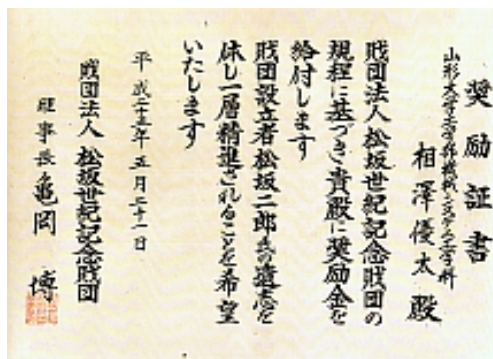 奨励証書
山形大学工学部機械システム工学科
相澤優太 殿
財団法人 松坂世紀記念財団の
規程に基づき貴殿に奨励金を
給付します
財団設立者松坂二郎氏の遺志を
休し一層精進されることを希望
いたします
平成二十五年五月三十一日
財団法人 松坂世紀記念財団
理事長 亀岡 博